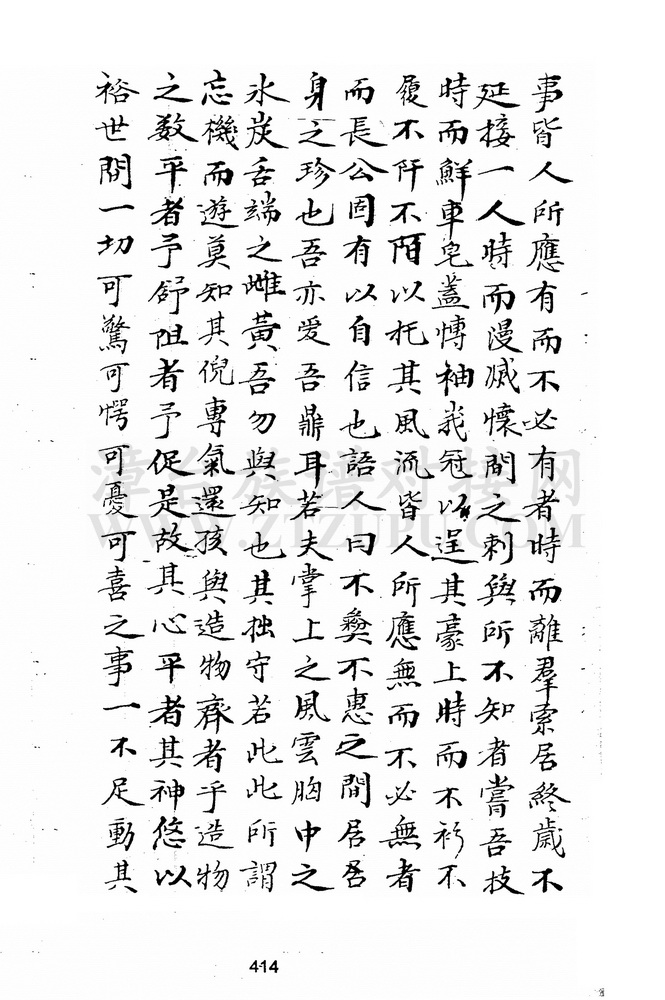 事皆人所應有而不必有者時而離羣索居終歲不
延接一人時而漫滅懷間之刺與所不知者嘗吾技
時而鮮車皂蓋愽袖峩冠以逞其豪上時而不衫不
履不阡不陌以托其風流皆人所應無而不必無者
而長公固有以自信也語人曰不夷不惠之間居吾
身之珍也吾亦愛吾鼎耳若夫掌上之風雲胸中之
氷炭舌端之雌黃吾勿與知也其拙守若此此所謂
忘機而遊莫知其倪專氣還孩與造物齊者乎造物
之数平者予舒阻者予促是故其心平者其神悠以
裕世間一切可驚可愕可憂可喜之事一不足動其
漳台族谱对接网
WWW.ZTZUPU.COM
414